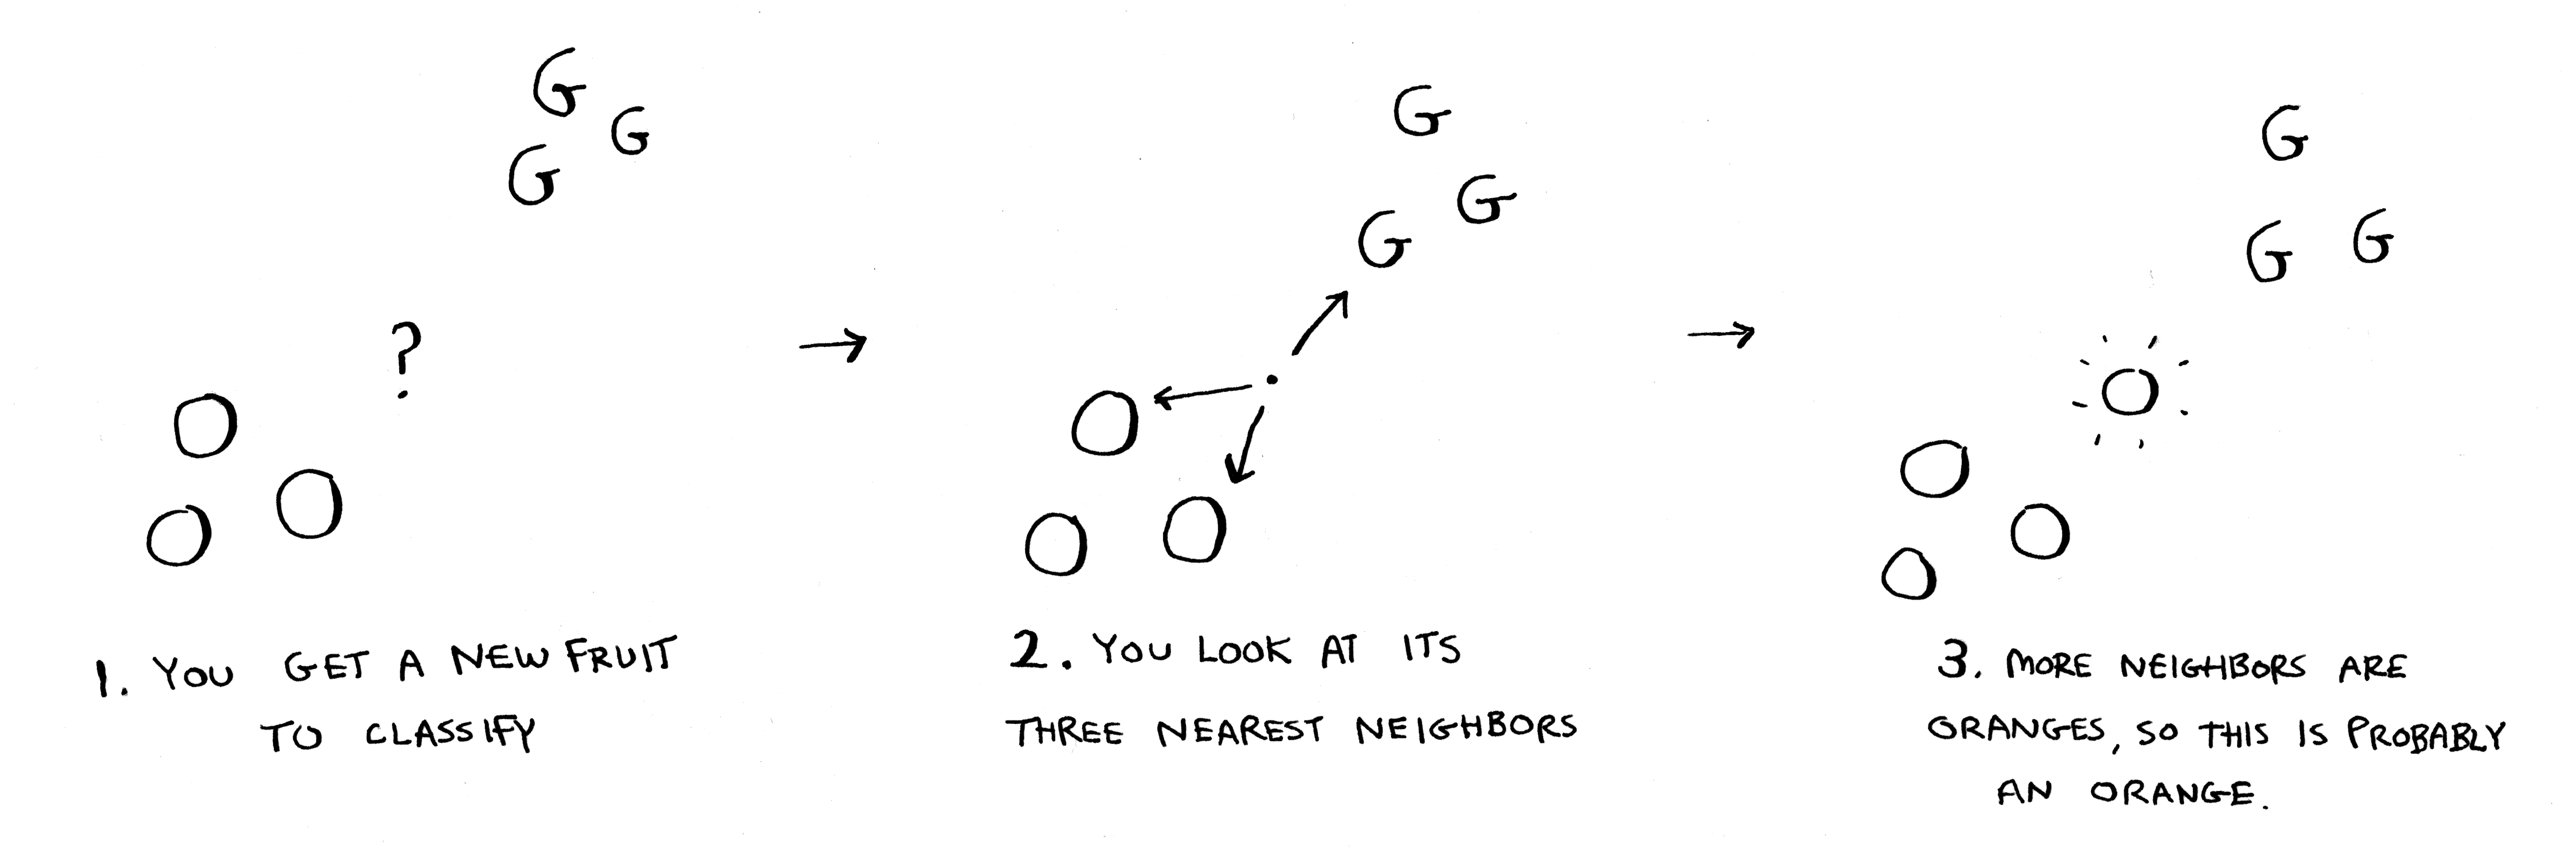 G
G
G
?
O
O
O
1. YOU GET A NEW FRUIT
TO CLASSIFY
G
G
G
O
O
O
2. YOU LOOK AT ITS
THREE NEAREST NEIGHBORS
G
G G
O
O
O
O
3. MORE NEIGHBORS ARE
ORANGES, SO THIS IS PROBABLY
AN ORANGE.